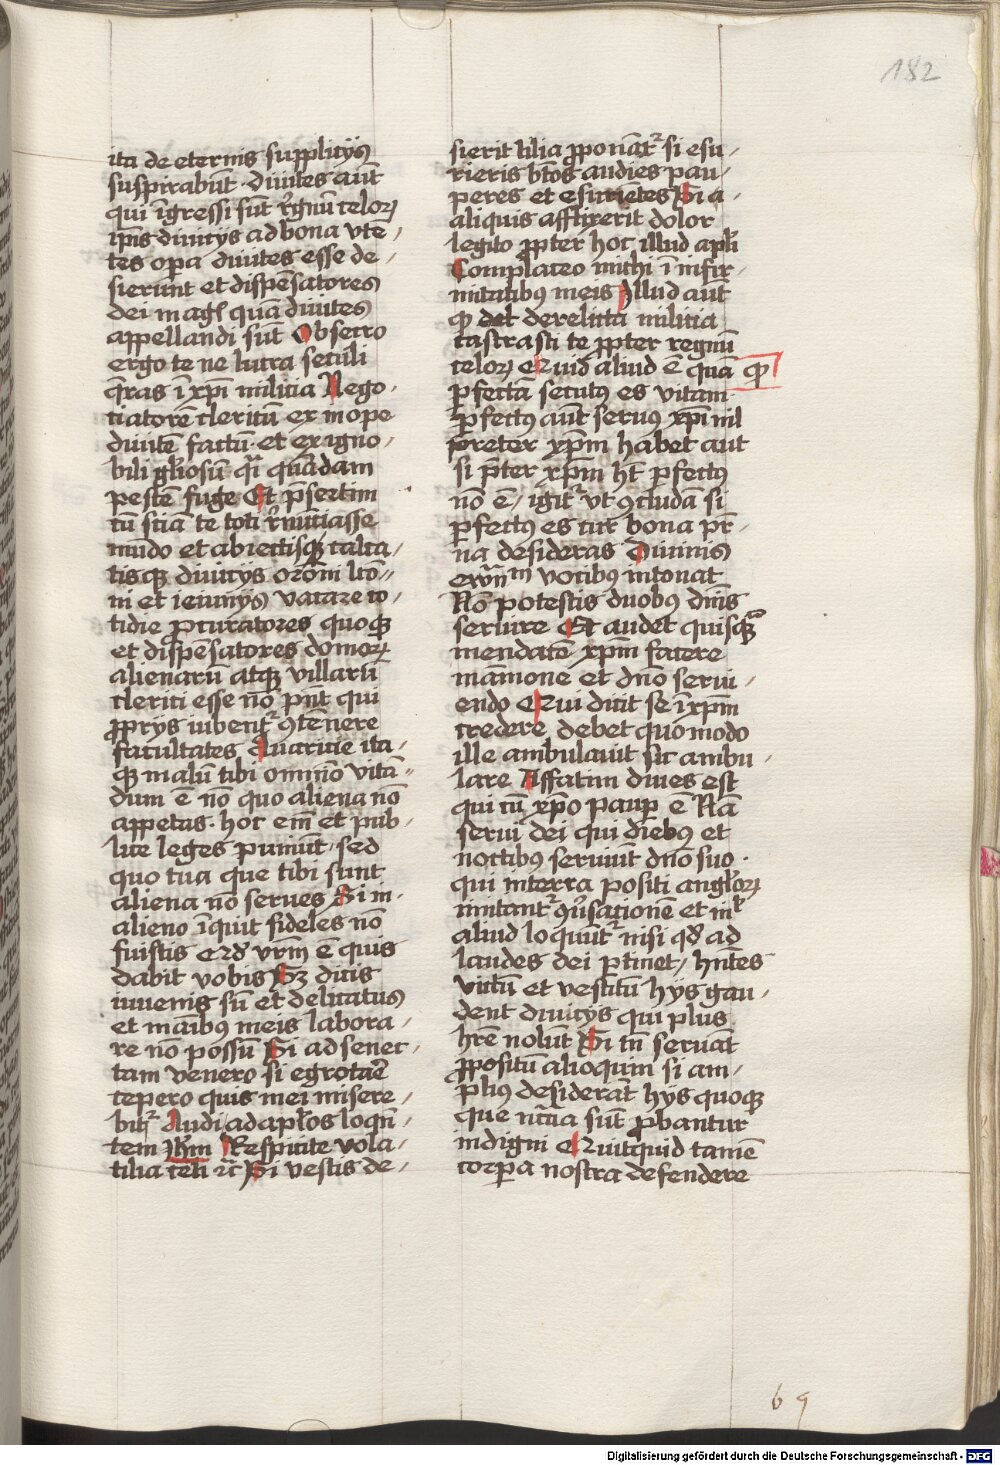 182
ita de eternis supplicijs
suspirabūt · diuites aūt
qui īgressi sūt rͥgnū celoꝝ
ip̄is diuicijs ad bona vte /
tes oꝑa diuites esse de /
sierunt et dispēsatores
dei magͥ quā diuites
appellandi sūt Obsecro
ergo te ne lucra seculi
q̄ras ī xp̄i milicia Nego ·
ciatorē clericū ex inope
diuitē factū · et ex igno /
bili gl̓iosū · qͣi quādam
pestē fuge Et p̄sertim
cū sciā te toti rͥnūciasse
mundo et abiectisqꝫ calca /
tisqꝫ diuicijs orōni lcō //
ni et ieiunijs vacare co /
tidie ꝓcuratores quoqꝫ
et dispēsatores domoꝝ
alienarū atqꝫ villarū
clerici esse nō pn̄t qui
ꝓprijs iubentᷣ ꝯtēnere
facultates Auaricie ita /
qꝫ malū tibi omnīo vitā //
dum ē nō quo aliena nō
appetas · hoc em̄ et pub /
lice leges puniūt / sed
quo tua que tibi sunt
aliena nō serues Si in ·
alieno īquit fideles nō
fuistis Qd̓ vrm̄ ē quis
dabit vobis Sꝫ dicis
iuuenis sū et delicatus
et māibꝰ meis labora /
re nō possū Si ad senec /
tam venero si egrotaē
cepero quis mei misere /
bitᷣ Audi ad apl̓os loqn̄
tem Ihm̄ Respicite vola /
tilia celi ꝛc̄ Si vestis de /
sierit lilia ꝓponātᷣ si esu /
rieris btō̄s audies pau /
peres et esuriētes Si a /
aliquis afflixerit dolor
legito ꝓpter hoc illud apl̓i
Complaceo michi ī infir /
mitatibꝰ meis Illud aūt
qꝫ det derelicta milicia
castrasti te ꝓpter regnū
celoꝝ Quid aliud ē quā qꝫ
ꝑfectā secutus es vitam
ꝑfectus aūt seruꝰ xp̄i nil
preter xp̄m habet aut
si p̄ter xp̄m hꝫ ꝑfectus
nō ē / igitᷣ vt ꝯcludā si
ꝑfectus es cur bona pr̄ ·
na desideras Diuinis
ewn̄m vocibus intonat
Nō potestis duobꝰ dn̄is
seruire Et audet quisqꝫ
mendacē xp̄m facere
māmone et dnō serui /
endo Qui dicit se ī xp̄m
credere debet quomodo
ille ambulauit sic ambu /
lare Affatim diues est
qui cū xp̄o pauꝑ ē Nā
serui dei qui diebꝰ et
noctibꝰ seruiūt dnō suo ·
qui in terra positi angl̓oꝝ
imitantᷣ ꝯu̓sacionē et nͥl
aliud loquūtᷣ nisi qd̓ ad
laudes dei ꝑtinet / hn̄tes
victū et vestitū hijs gau /
dent diuicijs qui plus
hr̄e nolūt Si tn̄ seruāt
ꝓpositū alioquin si am /
plius desiderāt hijs quoqꝫ
que nc̄cͣia sūt ꝓbantur
indigni Quicquid tamē
corꝑa nostra defendere
69
Digitalisierung gefördert durch die Deutsche Forschungsgemeinschaft - DFG